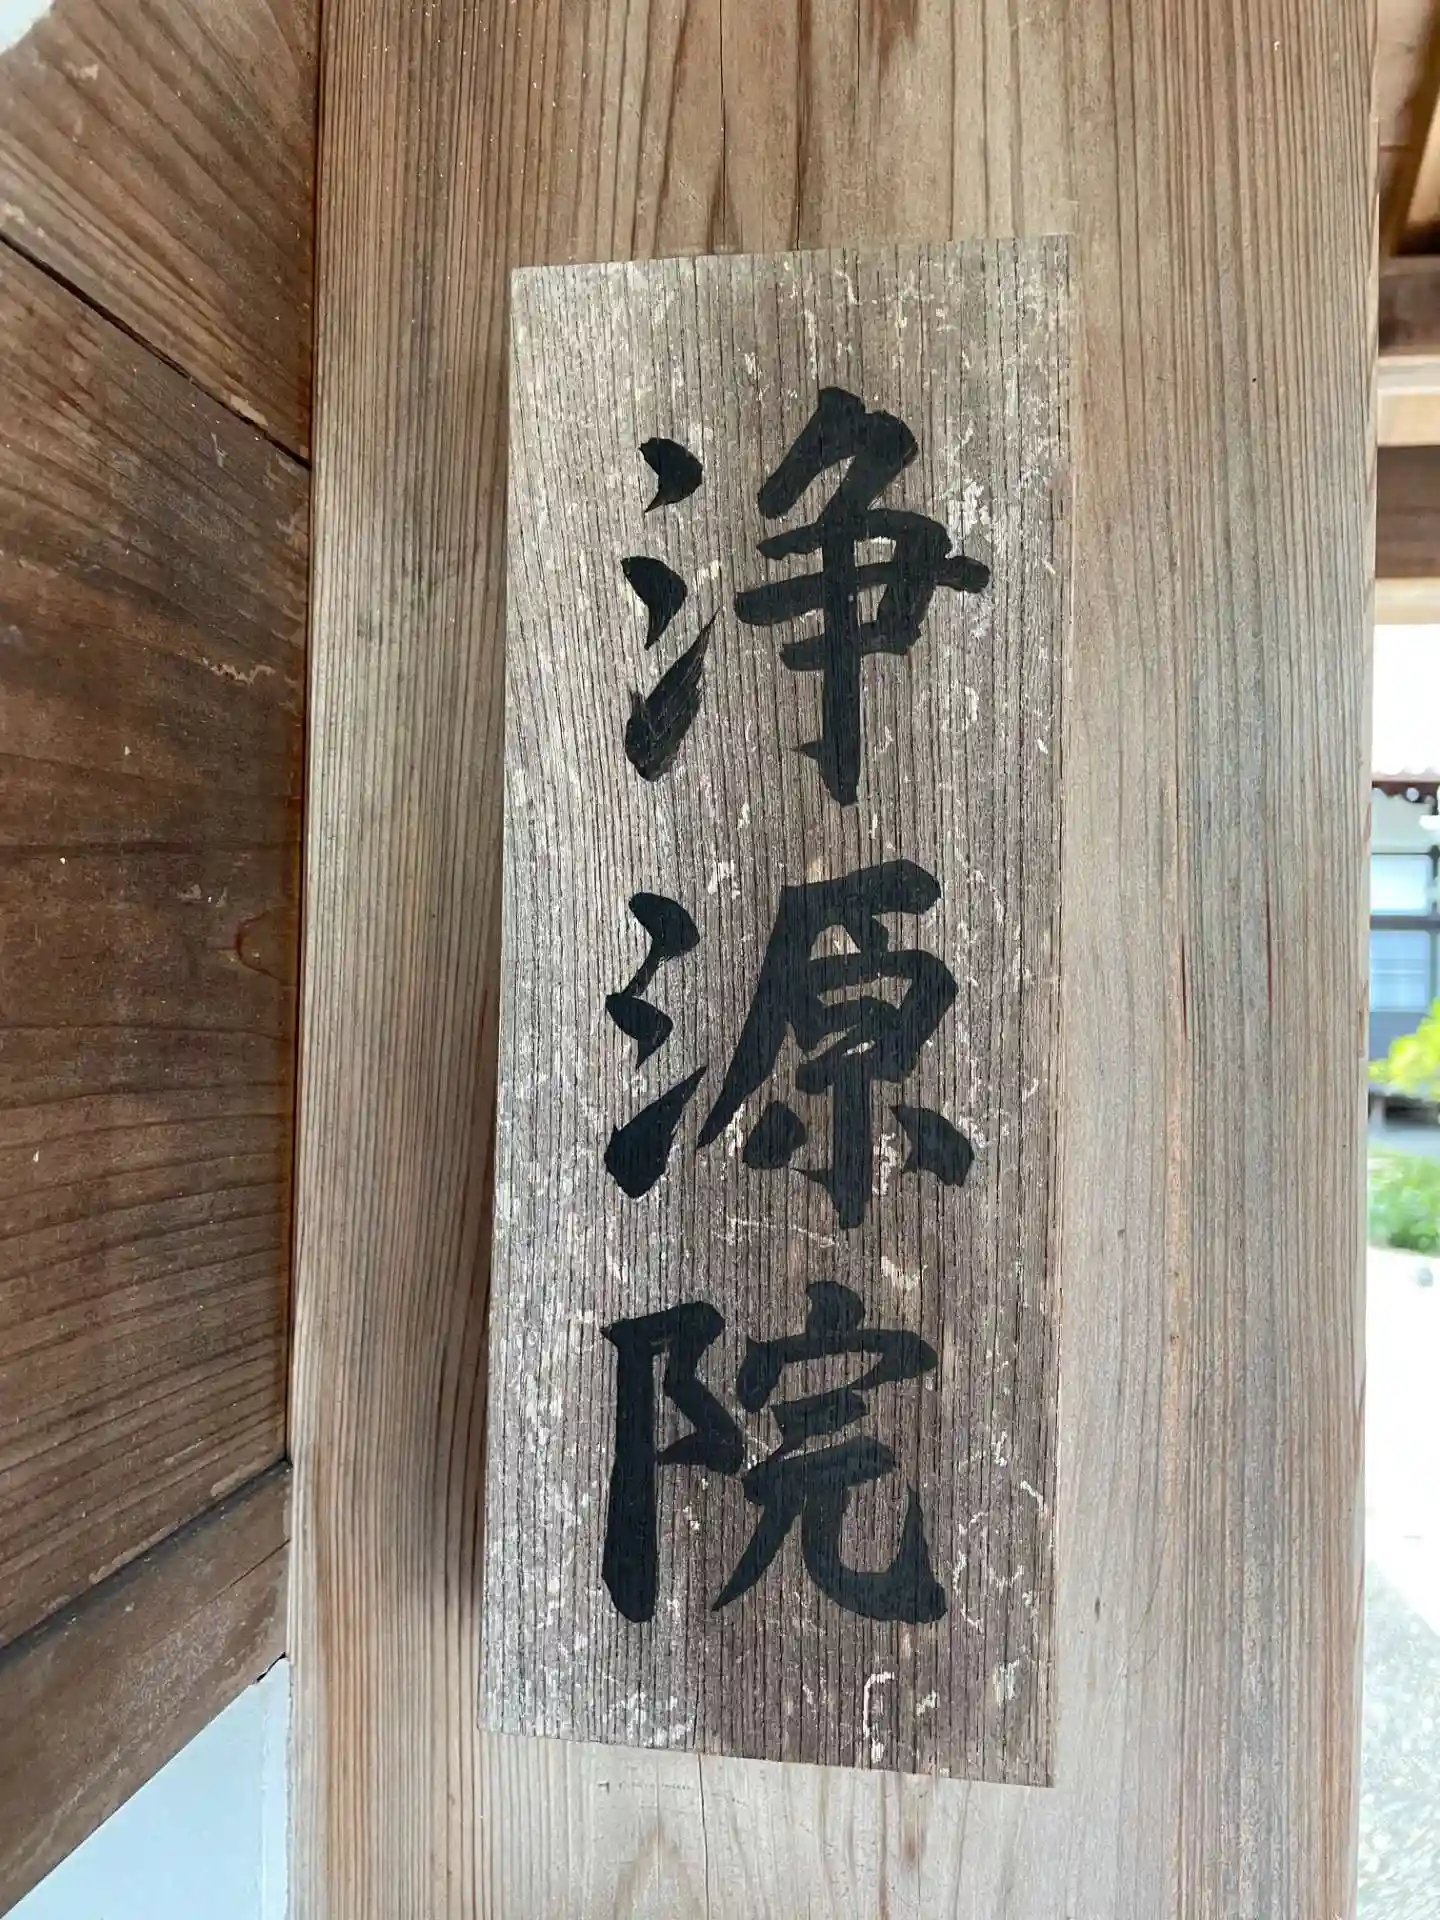 浄源院